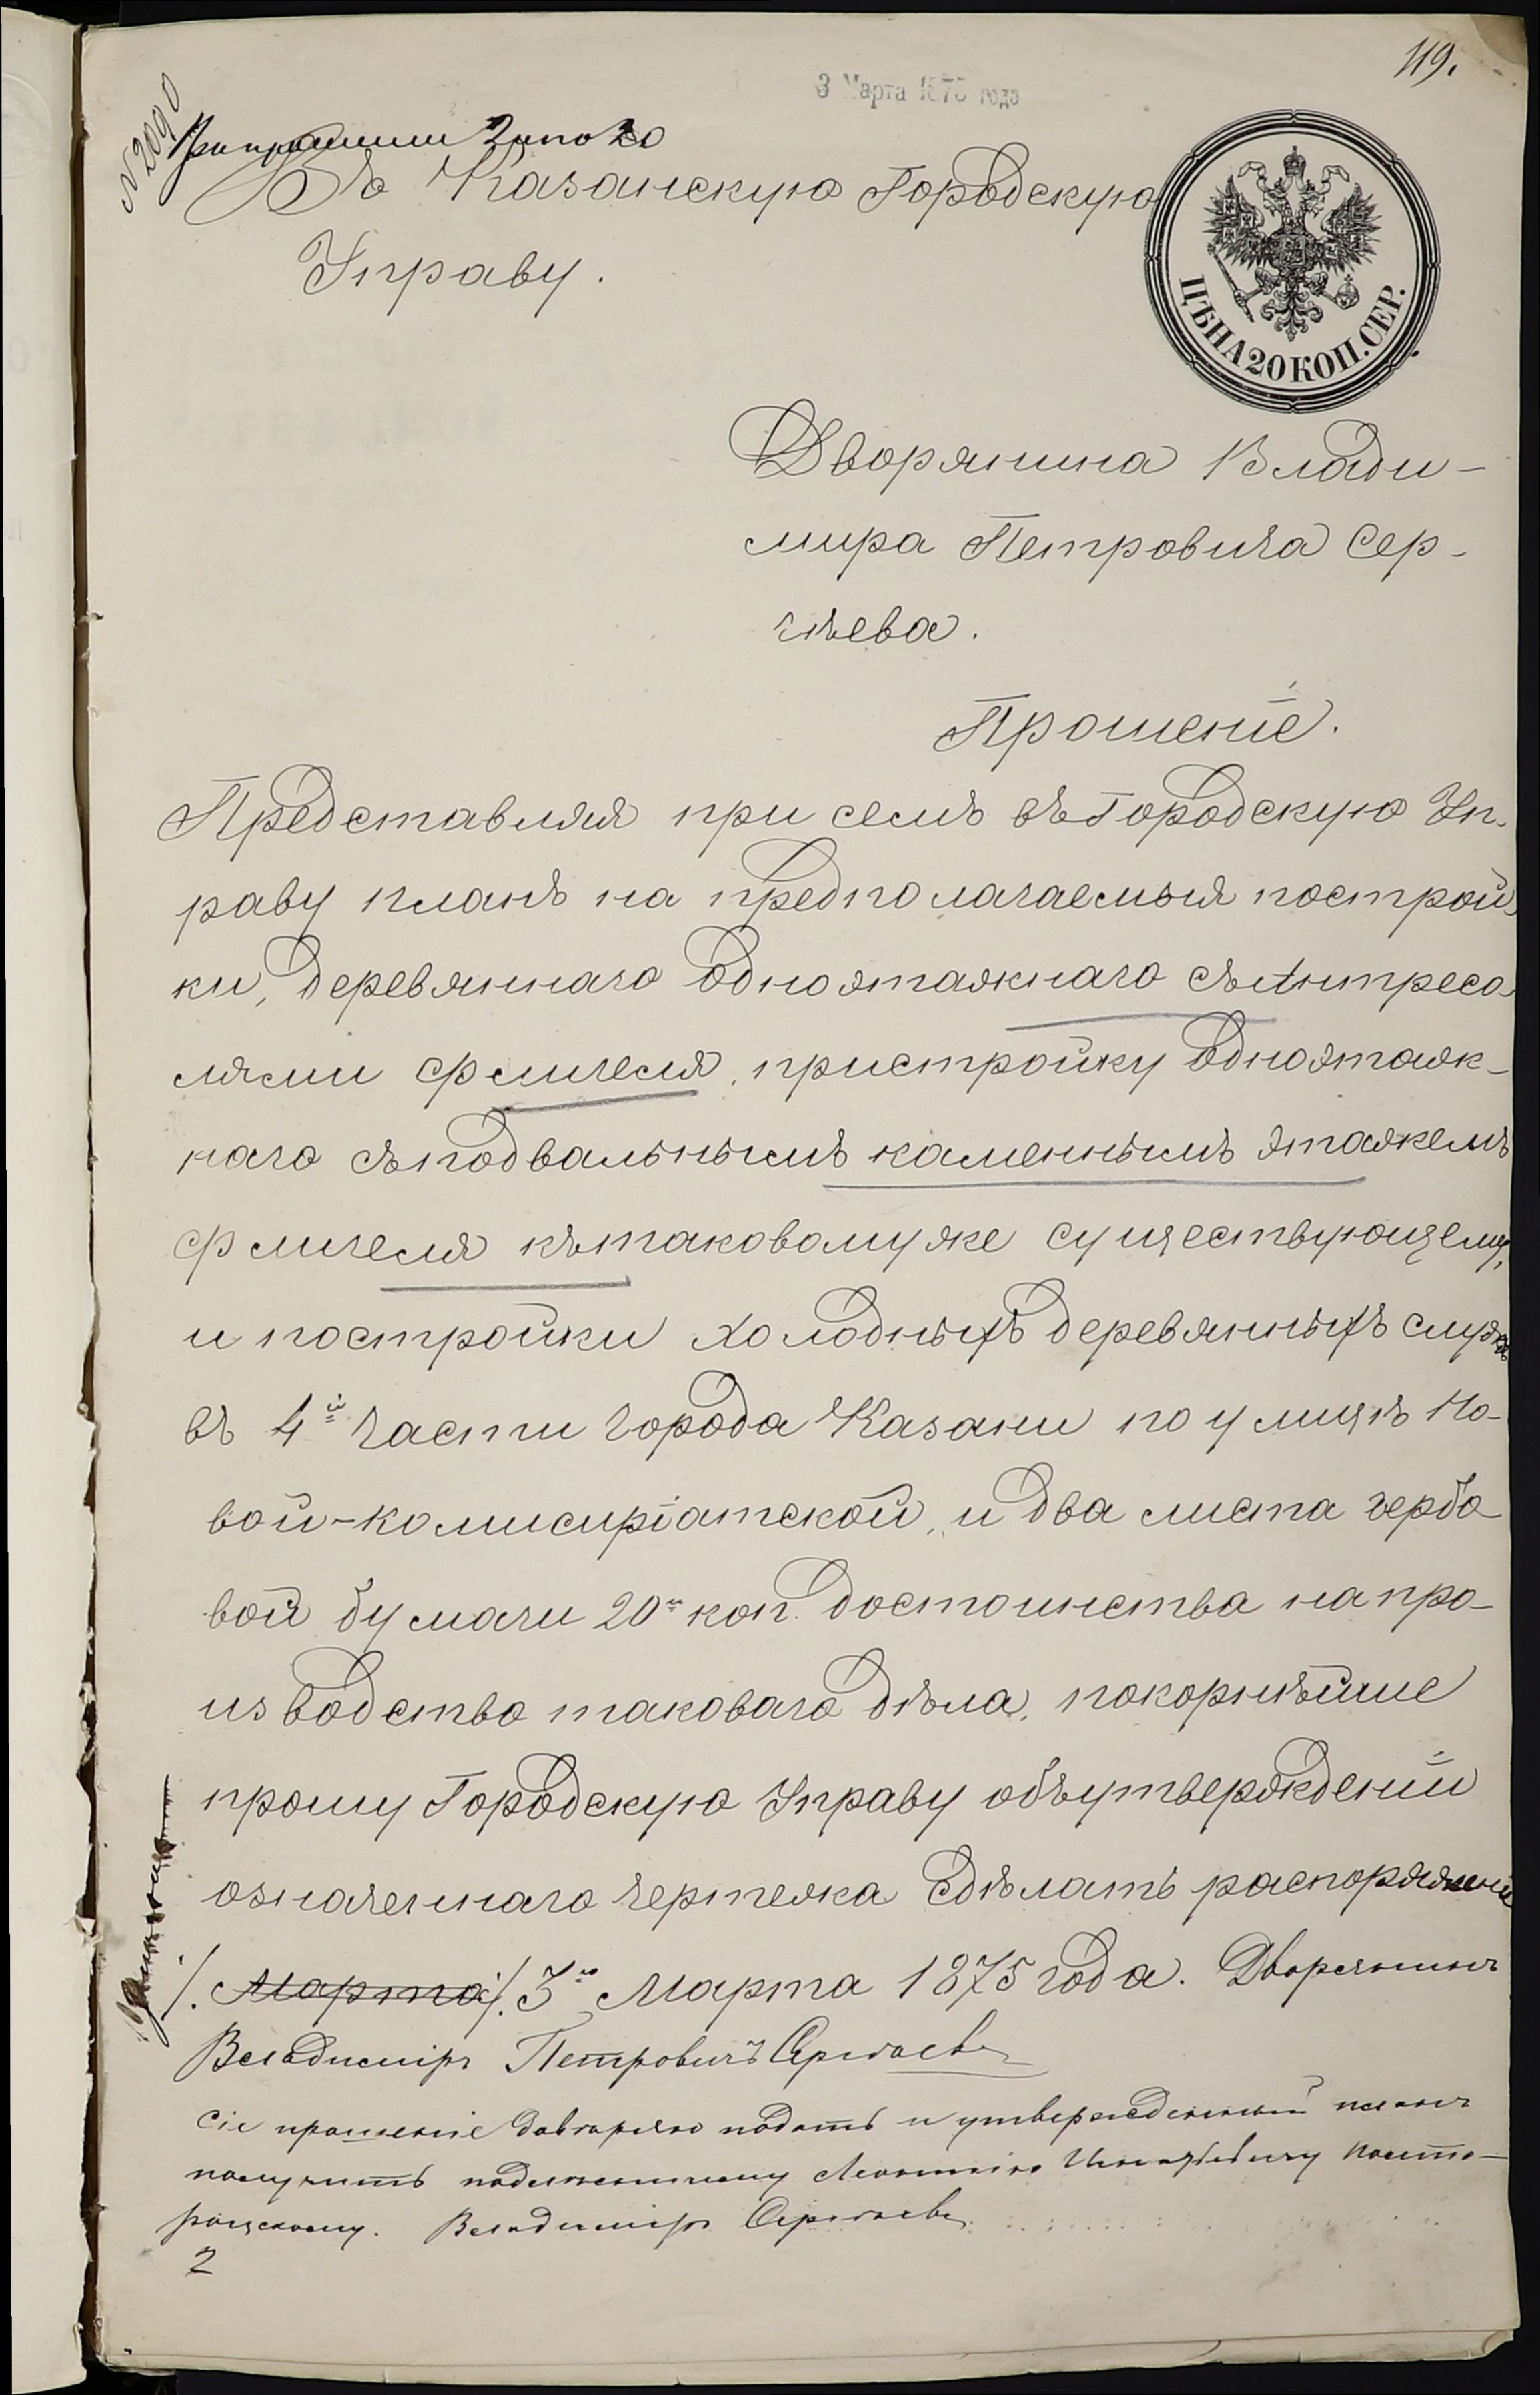 119.
3 Марта 1875 года
№ 2090
При прошении 2 л по 20
Въ Казанскую Городскую
Управу.
ЦѢНА 20 КОП. СЕР.
Дворянина Влади-
мира Петровича Сер-
гѣева.
Прошеніе.
Представляя при семъ въ Городскую Уп-
раву планъ на предполагаемыя построй-
ки, деревяннаго одноэтажнаго съ Антресо-
лями флигеля, пристройку одноэтаж-
наго съ подвальнымъ каменнымъ этажемъ
флигеля къ таковому же существующему,
и постройки холодныхъ деревянныхъ службъ
въ 4й части города Казани по улицѣ Но-
вой-комисиріатской, и два листа гербо-
вой бумаги 20и коп. достоинства на про-
изводство таковаго дѣла, покорнѣйше
прошу Городскую Управу объ утвержденіи
означеннаго чертежа сдѣлать распоряженіе
/. Марта /. 3го Марта 1875 года. Дворянинъ
Владиміръ Петровичъ Сергѣевъ
Сіе прошеніе довѣряю подать и утвержденный планъ
получить
Владиміръ Сергѣевъ.
2